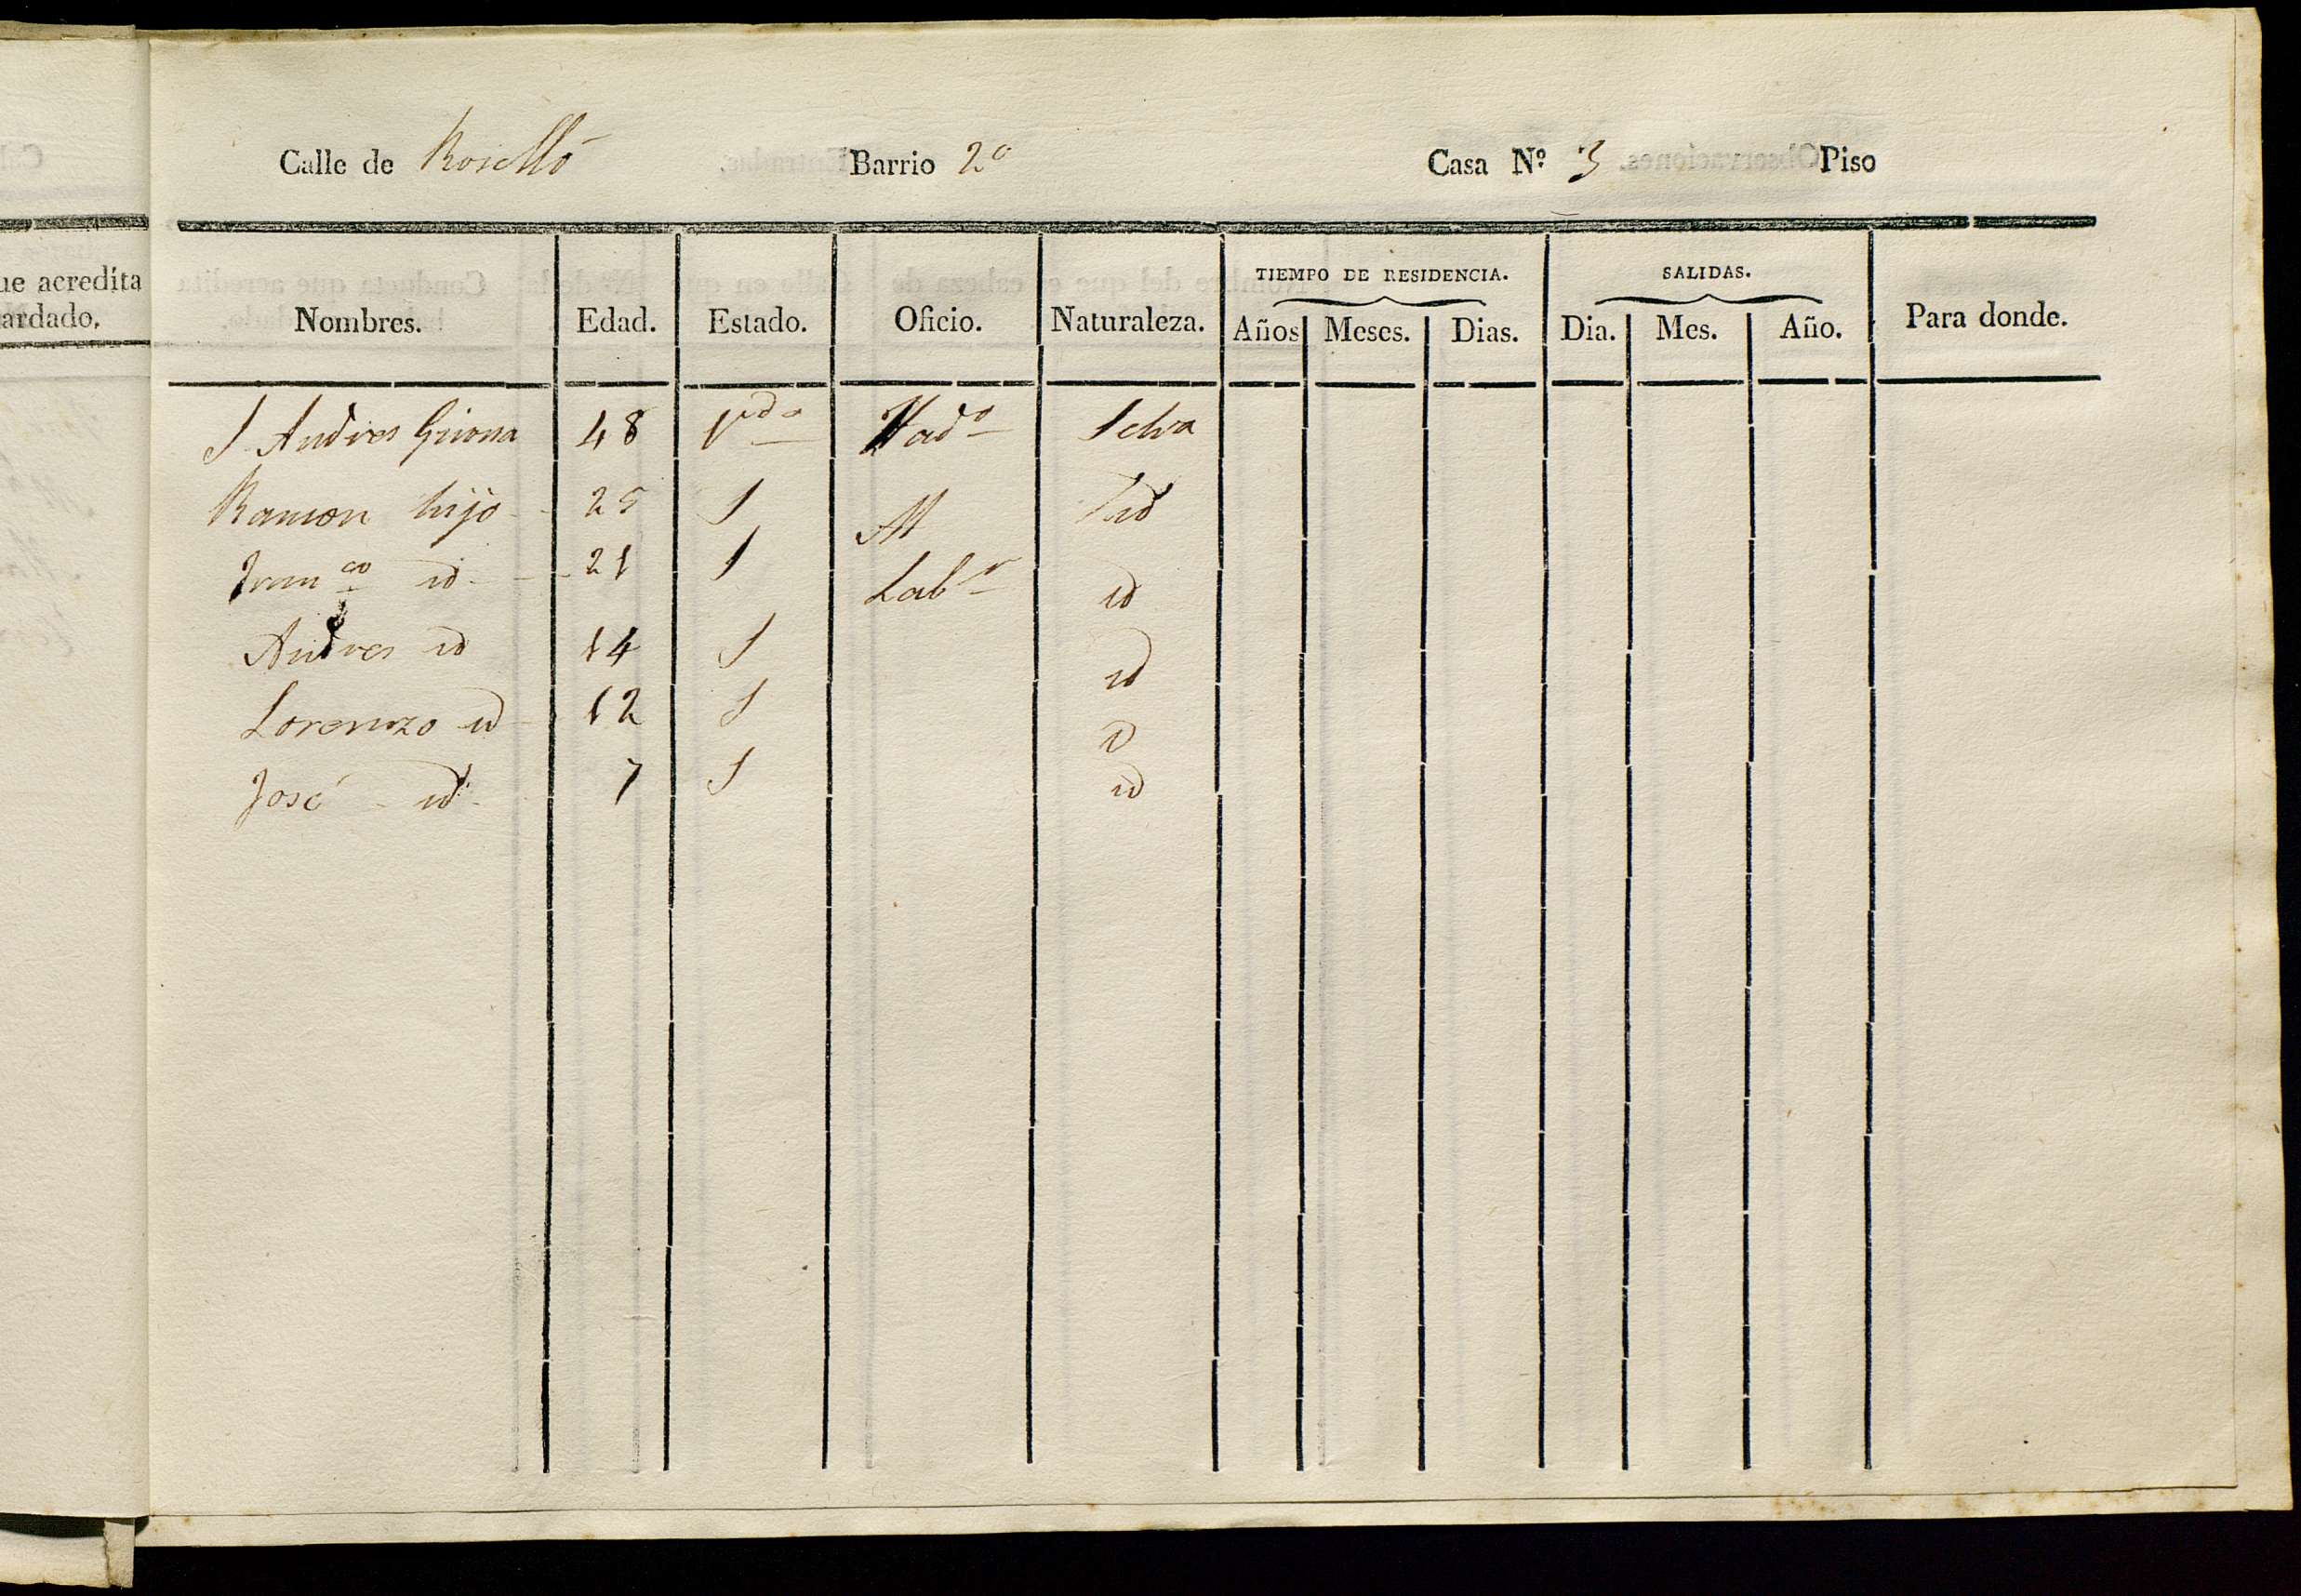 ue acredita
ardado.
Calle de Roselló Barrio 2º Casa Nº 3 Piso
Nombres. Edad. Estado. Oficio. Naturaleza. TIEMPO DE RESIDENCIA. Años Meses. Dias. SALIDAS. Dia. Mes. Año. Para donde.
J Andres Girona 48 Vdo Hado Selva
Ramon hijo 25 S M Id
Franco id 21 S Labr id
Andres id 14 S id
Lorenzo id 12 S id
José id 7 S id